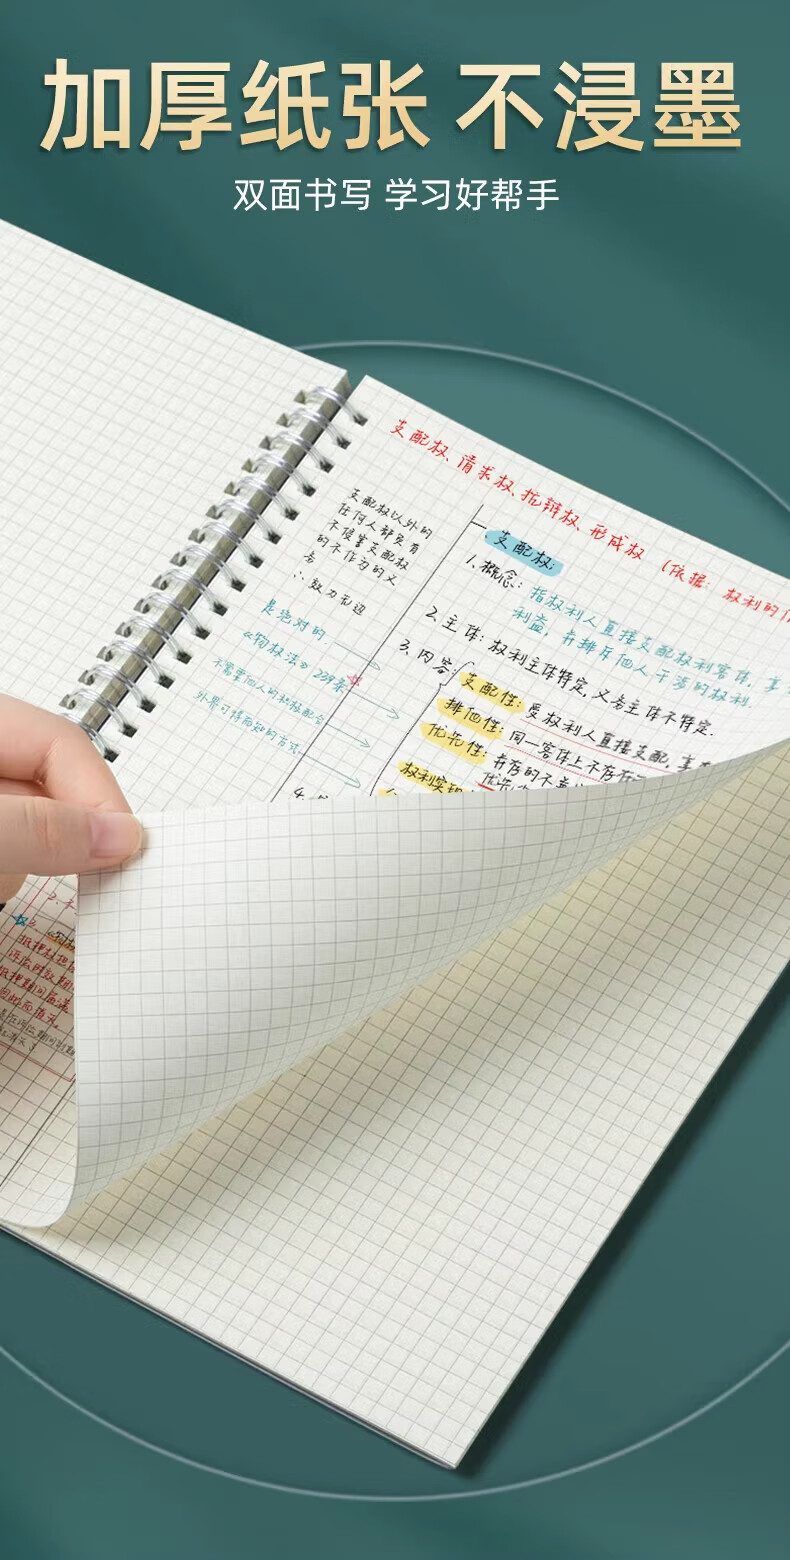 加厚纸张 不浸墨
双面书写 学习好帮手
支配权、请求权、抗辩权、形成权 (依据: 权利的作
支配权以外的
任何人都负有
不侵害支配权
的不作为的义
务
∴效力无边
是绝对的
《物权法》239条
不需要他人的积极配合
外界可得而知的方式
支配权:
1、概念: 指权利人直接支配权利客体, 享
利益, 并排斥他人干涉的权利.
2、主体: 权利主体特定, 义务主体不特定.
3、内容:
支配性: 受权利人直接支配, 享
排他性: 同一客体上不存在
优先性: 并存的不
优先
权利实现
4、
2、
3、
抵押权
抵押期间届满